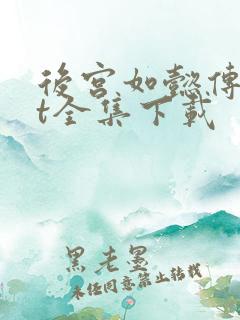 後宫如懿傳
t全集下载
黑老墨
未任同意禁止转載